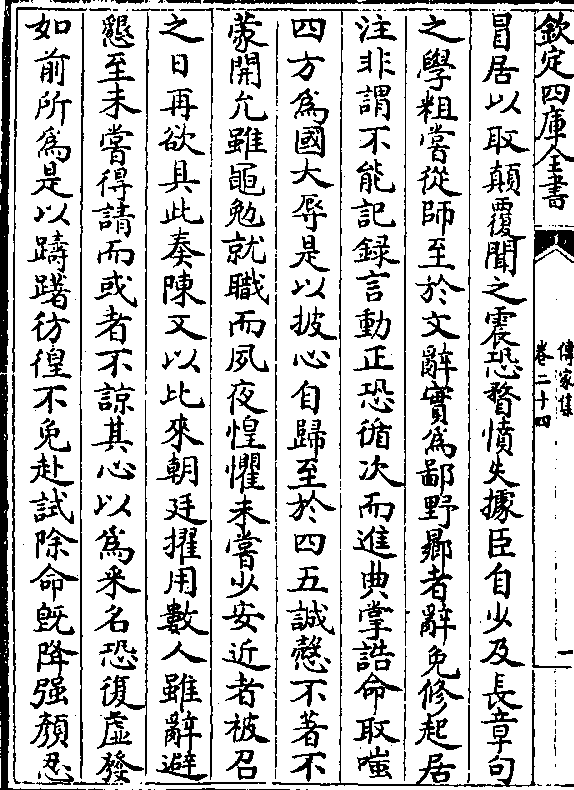 欽定四庫全書
傳家集
卷二十四
一
冒居以取顛覆聞之震恐瞀憒失據臣自少及長章句
之學粗嘗從師至於文辭實為鄙野曏者辭免修起居
注非謂不能記録言動正恐循次而進典掌誥命取嗤
四方為國大辱是以披心自歸至於四五誠慤不著不
蒙開允雖黽勉就職而夙夜惶懼未嘗少安近者被召
之日再欲具此奏陳又以比來朝廷擢用數人雖辭避
懇至未嘗得請而或者不諒其心以為釆名恐復虛發
如前所為是以躊躇彷徨不免赴試除命既降强顔忍